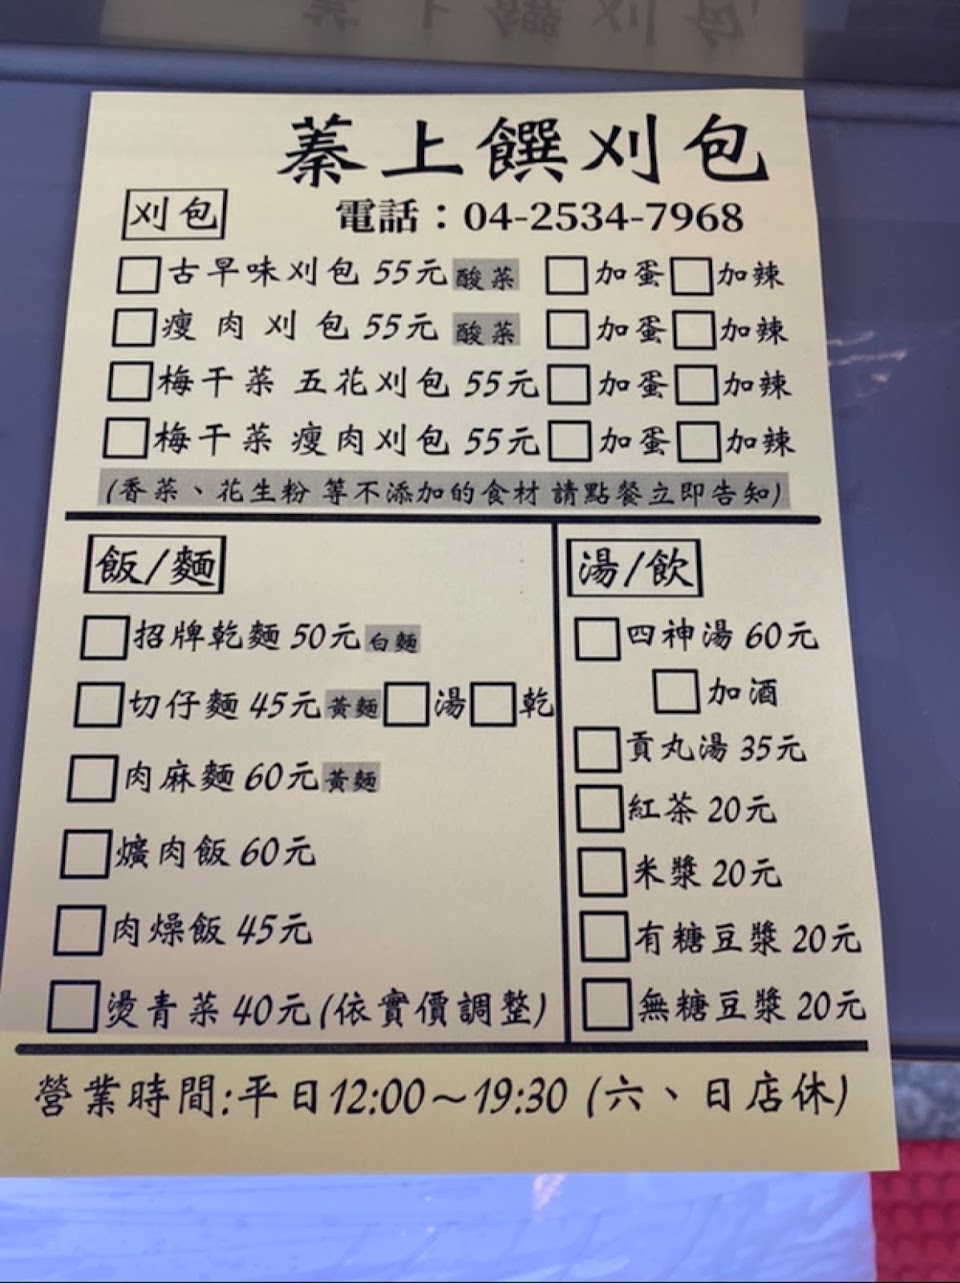 蓁上饌刈包
刈包
電話：04-2534-7968
□古早味刈包 55元 酸菜 □加蛋□加辣
□瘦肉刈包 55元 酸菜 □加蛋□加辣
□梅干菜 五花刈包 55元□加蛋□加辣
□梅干菜 瘦肉刈包 55元□加蛋□加辣
(香菜、花生粉 等不添加的食材 請點餐立即告知)
飯/麵
□招牌乾麵 50元 白麵
□切仔麵 45元 黃麵 □湯□乾
□肉麻麵 60元 黃麵
□爌肉飯 60元
□肉燥飯 45元
□燙青菜 40元(依實價調整)
湯/飲
□四神湯 60元
□加酒
□貢丸湯 35元
□紅茶 20元
□米漿 20元
□有糖豆漿 20元
□無糖豆漿 20元
營業時間:平日12:00～19:30 (六、日店休)